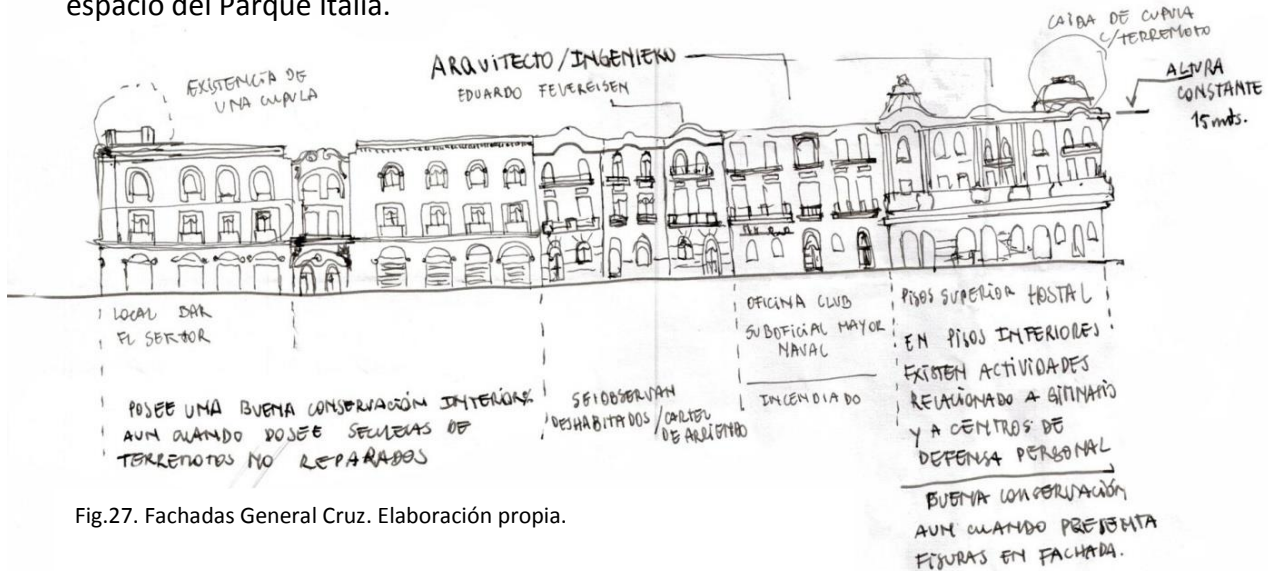 espacio del Parque Italia.
CAIDA DE CUPULA
C/TERREMOTO
ARQUITECTO/INGENIERO
EDUARDO FEVEREISEN
EXISTENCIA DE
UNA CUPULA
ALTURA
CONSTANTE
15 mts.
LOCAL BAR
EL
POSEE UNA BUENA CONSERVACIÓN INTERIOR
AUN CUANDO POSEE SECUELAS DE
TERREMOTOS NO REPARADOS
SE OBSERVAN
DESHABITADOS/CARTEL
DE ARRIENDO
OFICINA CLUB
SUBOFICIAL MAYOR
NAVAL
INCENDIADO
PISOS SUPERIOR HOSTAL
EN PISOS INFERIORES
EXISTEN ACTIVIDADES
RELACIONADO A GIMNASIO
Y A CENTROS DE
DEFENSA PERSONAL
BUENA CONSERVACIÓN
AUN CUANDO PRESENTA
FISURAS EN FACHADA.
Fig.27. Fachadas General Cruz. Elaboración propia.